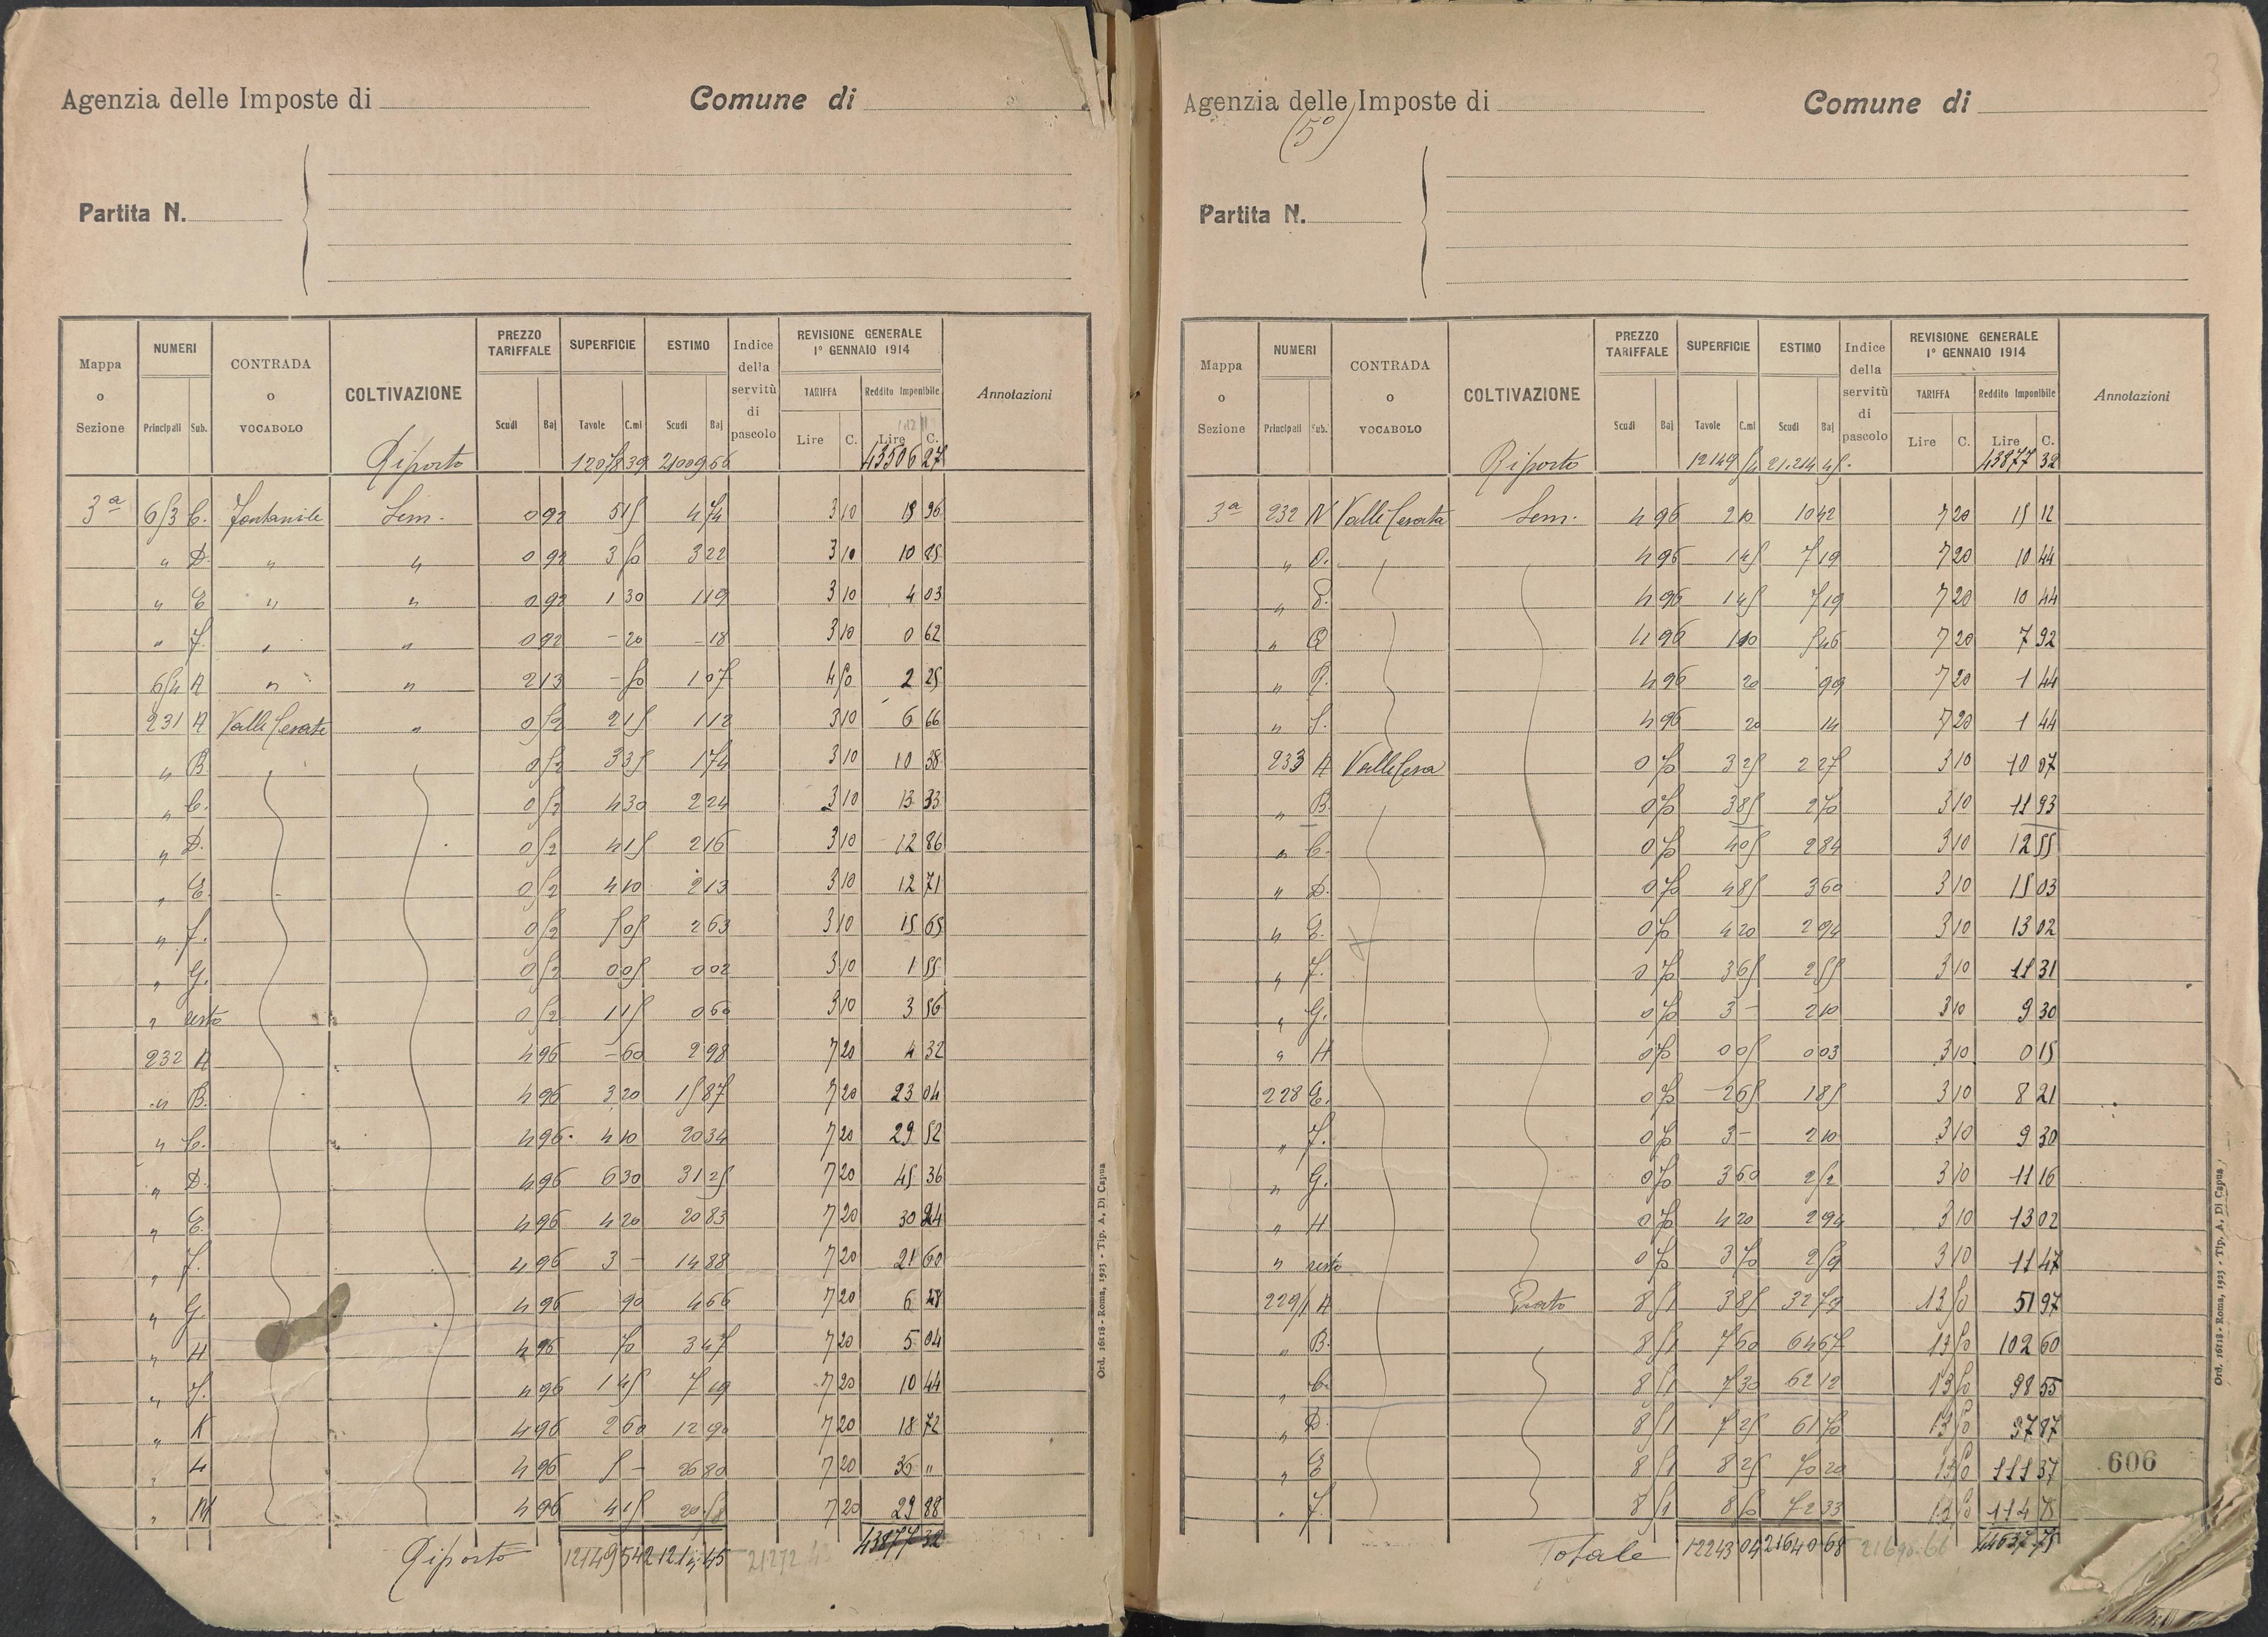 Agenzia delle Imposte di Comune di
Partita N.
Mappa o Sezione NUMERI Principali Sub. CONTRADA o VOCABOLO COLTIVAZIONE PREZZO TARIFFALE Scudi Baj SUPERFICIE Tavole C.mi ESTIMO Scudi Baj Indice della servitù di pascolo REVISIONE GENERALE 1° GENNAIO 1914 TARIFFA Lire C. Reddito Imponibile Lire C. Annotazioni
Riporto 43506 27
3ª C. Fontanile Sem. 0 92 3 10
" D. " " 0 92 3 50 3 22 3 10 10 85
" E " " 0 92 1 30 1 19 3 10 4 03
" F. " " 0 92 - 20 - 18 3 10 0 62
A " " 2 13 - 50 1 07 4 50 2 25
231 A " 0 52 2 15 1 12 3 10 6 66
" B 0 52 3 35 1 74 3 10 10 38
" C. 0 52 4 30 2 24 3 10 13 33
" D. 0 52 4 15 2 16 3 10 12 86
" E. 0 52 4 10 2 13 3 10 12 71
" F. 0 52 5 05 2 63 3 10 15 65
" G. 0 52 0 05 0 02 3 10 1 55
" resto 0 52 1 15 0 60 3 10 3 56
232 A 4 96 - 60 2 98 7 20 4 32
" B. 4 96 3 20 15 87 7 20 23 04
" C. 4 96 4 10 20 34 7 20 29 52
" D. 4 96 6 30 31 25 7 20 45 36
" E. 4 96 4 20 20 83 7 20 30 24
" F. 4 96 3 - 14 88 7 20 21 60
" G. 4 96 90 4 66 7 20 6 48
" H 4 96 70 3 47 7 20 5 04
" J. 4 96 1 45 7 19 7 20 10 44
" K 4 96 2 60 12 90 7 20 18 72
" L 4 96 5 - 7 20 36 "
" M 4 96 4 15 20 58 7 20 29 88
Riporto 12149 54 21214 45 43877 32
Ord. 16118 - Roma, 1923 - Tip. A. Di Capua
Agenzia delle Imposte di Comune di
(5°)
Partita N.
Mappa o Sezione NUMERI Principali Sub. CONTRADA o VOCABOLO COLTIVAZIONE PREZZO TARIFFALE Scudi Baj SUPERFICIE Tavole C.mi ESTIMO Scudi Baj Indice della servitù di pascolo REVISIONE GENERALE 1° GENNAIO 1914 TARIFFA Lire C. Reddito Imponibile Lire C. Annotazioni
Riporto 12149 54 21.214 45 43877 32
3ª 232 N Sem. 4 96 2 10 10 42 7 20 15 12
" O. 4 96 1 45 7 19 7 20 10 44
" P. 4 96 1 45 7 19 7 20 10 44
" Q 4 96 1 10 5 46 7 20 7 92
" 4 96 20 99 7 20 1 44
" 4 96 20 7 20 1 44
233 A 0 70 3 25 2 27 3 10 10 07
" B. 0 70 3 85 2 70 3 10 11 93
" C. 0 70 4 05 2 84 3 10 12 55
" D. 0 70 4 85 3 60 3 10 15 03
" E. 0 70 4 20 2 94 3 10 13 02
" F. 0 70 3 65 2 55 3 10 11 31
" G. 0 70 3 - 2 10 3 10 9 30
" H 0 70 0 05 0 03 3 10 0 15
228 E. 0 70 2 65 1 85 3 10 8 21
" F. 0 70 3 - 2 10 3 10 9 30
" G. 0 70 3 60 2 52 3 10 11 16
" H 0 70 4 20 2 94 3 10 13 02
" resto 0 70 3 70 2 59 3 10 11 47
229/1 A Prato 8 51 3 85 13 50 51 97
" B. 8 51 7 60 64 67 13 50 102 60
" C. 8 51 7 30 62 12 13 50 98 55
" D. 8 51 7 25 61 70 13 50
" E 8 51 8 25 70 20 13 50 111 37
" F. 8 51 8 50 72 33 13 50 114 75
606
Totale 12243 04 21640 68
Ord. 16118 - Roma, 1923 - Tip. A. Di Capua